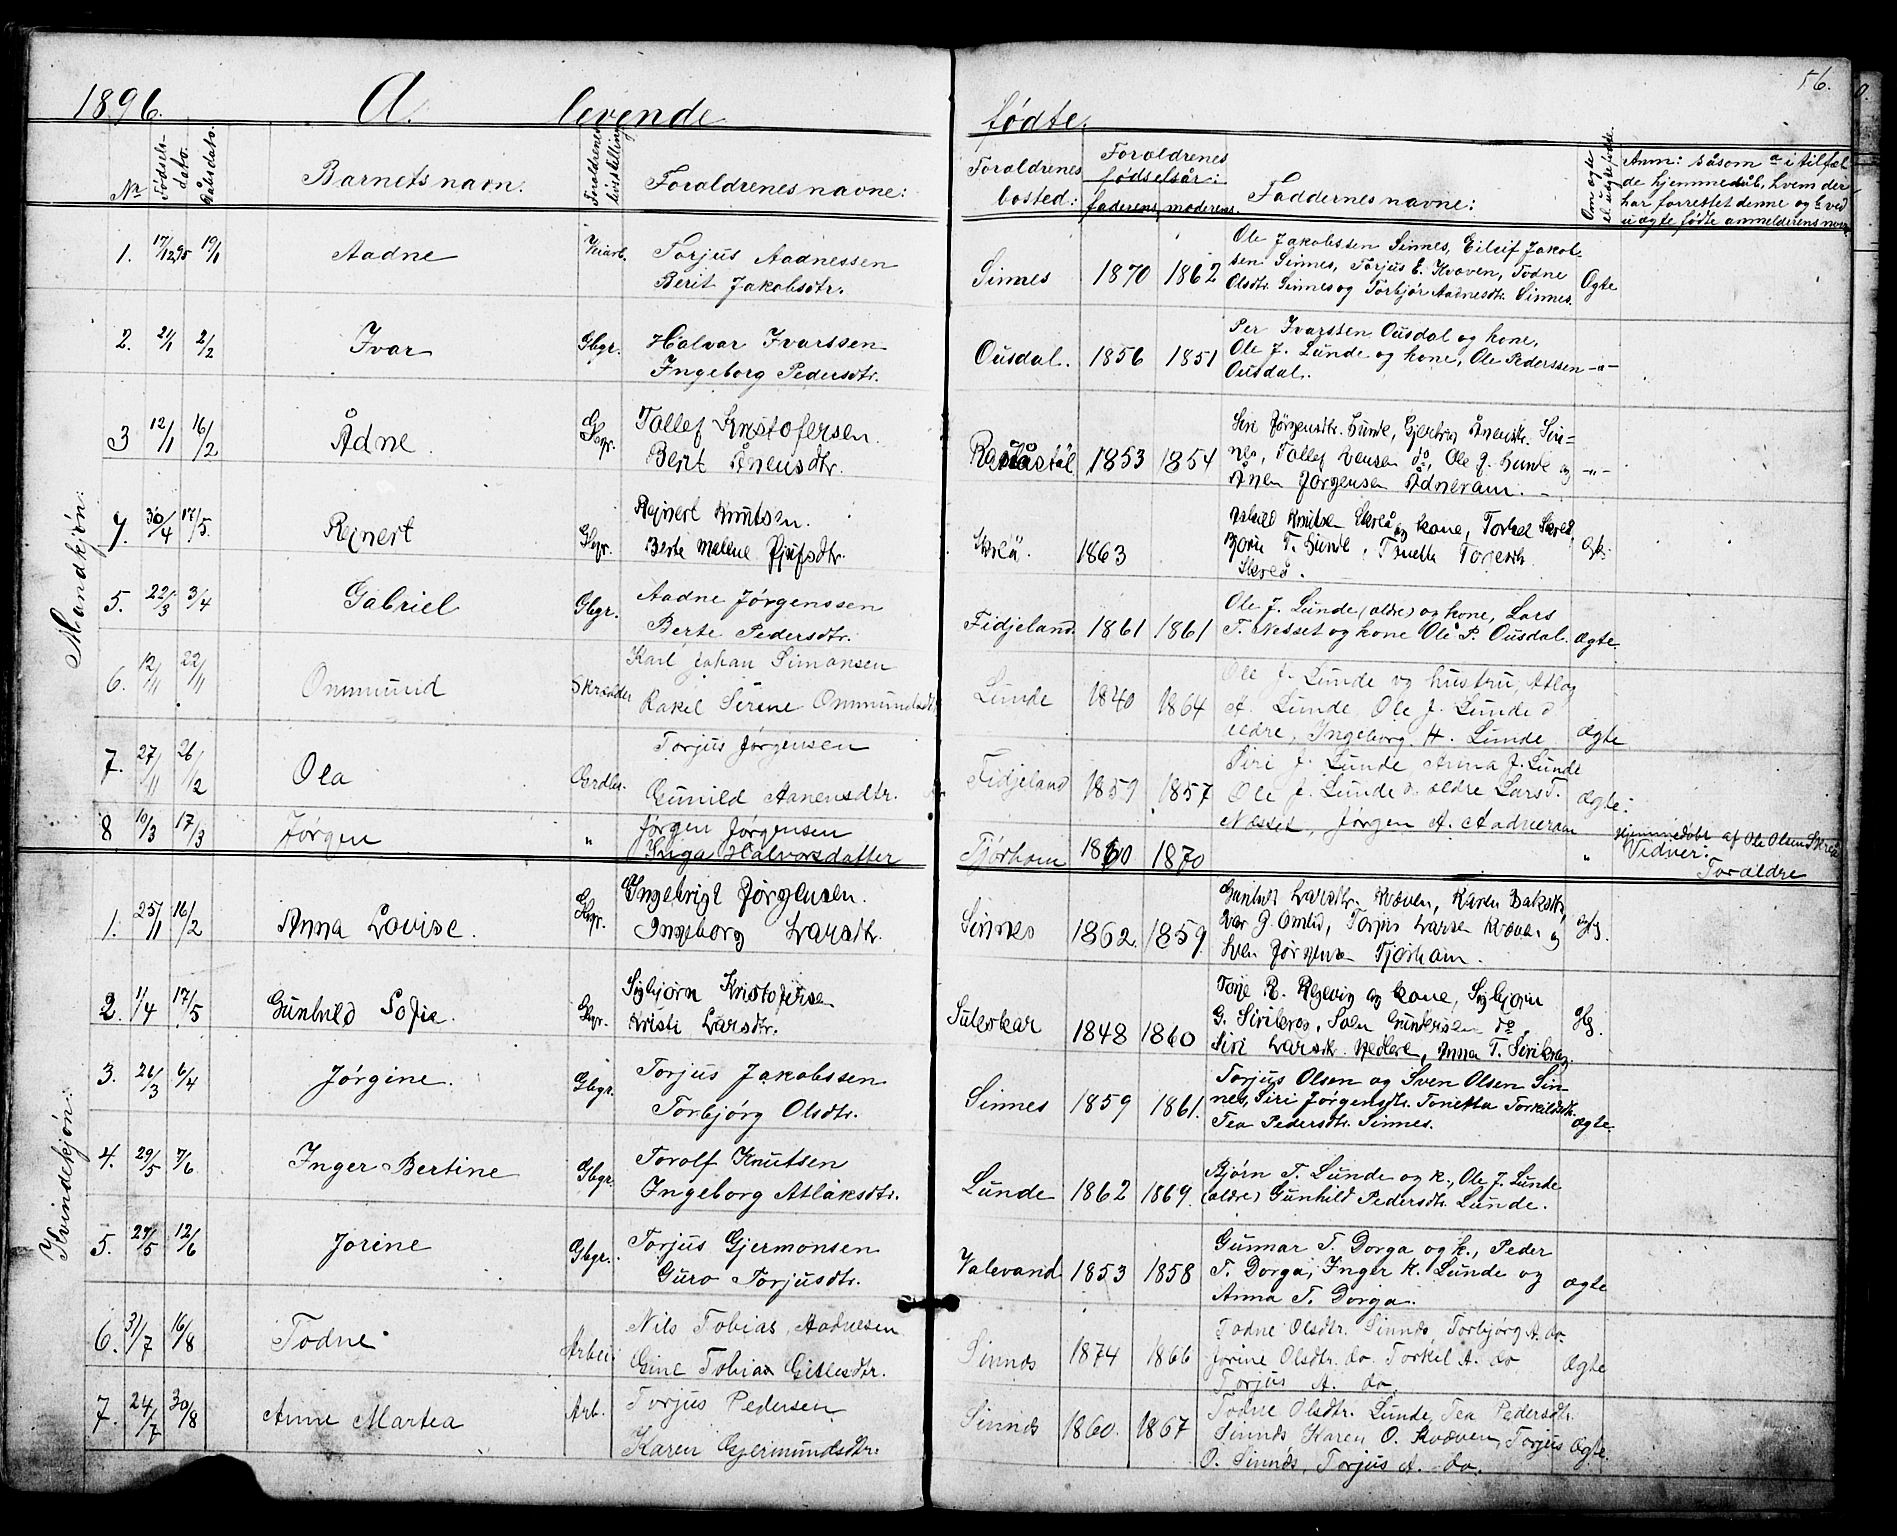 1896. A. levende
fødte.
56.
Nr
Fødsels-
dato.
Dåbsdato.
Barnets navn.
Forældrenes
livsstilling
Forældrenes navne:
Forældrenes
bosted:
Forældrenes
fødselsår:
faderens, moderens.
Faddernes navne:
Om ægte
el. uægte fødte.
Anm: såsom a i tilfæl-
de hjemmedåb, hvem der
har forrettet denne og b ved
uægte fødte anmelderens navn
Mandkjøn:
1. 17/12 95 19/1 Aadne Veiarb. Torjus Aadnessen
Berit Jakobsdtr.
Sinnes 1870 1862
Ole Jakobssen Sinnes, Eileif Jakob-
sen Sinnes, Torjus E. Kvæven, Todne
Olsdtr. Sinnes og Torbjør Aadnesdtr. Sinnes.
Ægte
2. 21/1 2/2 Ivar Gbgr. Halvar Ivarssen
Ingeborg Pedersdtr.
Ousdal. 1856 1851
Per Ivarssen Ousdal og kone,
Ole J. Lunde og kone, Ole Pederssen
Ousdal.
-"-
3 12/1 16/2 Ådne. Gbgr. Tallef Kristofersen.
Berit Ånensdtr.
1853 1854
Siri Jørgensdtr. Lunde, Ånensdtr. Sin-
nes, Tallef do, Ole J. Lunde og
Ånen Jørgensen Ådneram.
-"-
4. 30/4 17/5. Rejnert Gbgr. Rejnert Knutsen.
Berte Malene
Skreå. 1863
Knutsen Skreå og kone, Torkel Skreå,
Bjørn T. Lunde, Tonette
Skreå.
5. 22/3 3/4 Gabriel Gbgr. Aadne Jørgenssen
Berte Pedersdtr.
Fidjeland. 1861 1861
Ole J. Lunde (ældre) og kone, Lars
T. Nesset og kone Ole P. Ousdal.
ægte.
6. 12/11 22/11 Ommund Skrædder Karl Johan Simonsen
Rakel Serine Ommundsdtr
Lunde 1840 1864
Ole J. Lunde og hustru, Atlag
A. Lunde Ole J. Lunde d.
ældre, Ingeborg H. Lunde
Ægte
7. 27/11 26/12 Ola Grdbr. Torjus Jørgensen
Gunild Aanensdtr.
Fidjeland 1859 1857
Siri J. Lunde Anna J. Lunde
Ole J. Lunde d. ældre Lars T.
Nesset, Jørgen A. Aadneram
ægte.
8 10/3 17/3 Jørgen " Jørgen Jørgensen
Inga Halvorsdatter
Tjørhom 1860 1870
"
Hjemmedøbt af Ole Olsen Skreå
Vidner:
Forældre
Kvindekjøn:
1. 25/1 16/2 Anna Lovise. Gbgr. Ingebrigt Jørgensen.
Ingeborg Larsdtr.
Sinnes 1862. 1859.
Gunhild Larsdtr. Kvæven, Karen
Ivar G. Omlid, Torjus Larsen Kvæven og
Sven Jørgensen Tjørham.
2. 1/4 17/5 Gunhild Sofie. Gbgr. Sigbjørn Kristofersen
Kristi Larsdtr.
Suleskar 1848 1860
Tore R. og kone, Sigbjørn
G. Sirikros, Gundersen do,
Siri Larsdtr. Anna T.
3. 26/3 6/4 Jørgine. Gbgr. Torjus Jakobssen
Torbjørg Olsdtr.
Sinnes 1859 1861.
Torjus Olsen og Sven Olsen Sin-
nes, Siri Jørgensdtr. Tonetta Torkildsdtr.
Tea Pedersdtr. Sinnes.
ægte.
4. 29/5 7/6 Inger Bertine Gbgr. Torolf Knutsen
Ingeborg Atlaksdtr.
Lunde 1862 1869.
Bjørn T. Lunde og k., Ole J. Lunde
(ældre) Gunhild Pedersdtr. Lunde.
5. 27/5 12/6 Jorine Gbgr. Torjus Gjermonsen
Guro Torjusdtr.
Valevand 1853 1858
Gunnar T. Dorga og k., Peder
T. Dorga, Inger K. Lunde og
Anna T. Dorga.
ægte
6. 31/7 16/8 Todne Arbei Nils Tobias Aadnesen
Gine Tobias Gitlesdtr.
Sinnes 1874 1866
Todne Olsdtr. Sinnes, Torbjørg A. do.
Jorine Olsdtr. do. Torkel A. do
Torjus A. do.
Ægte
7. 24/7 30/8 Anne Martea Arb. Torjus Pedersen
Karen Gjermundsdtr.
Sinnes 1860. 1867
Todne Olsdtr. Lunde, Tea Pedersdtr.
Sinnes Karen O. Kvæven, Torjus
O. Sinnes, Torjus A. do.
Ægte.